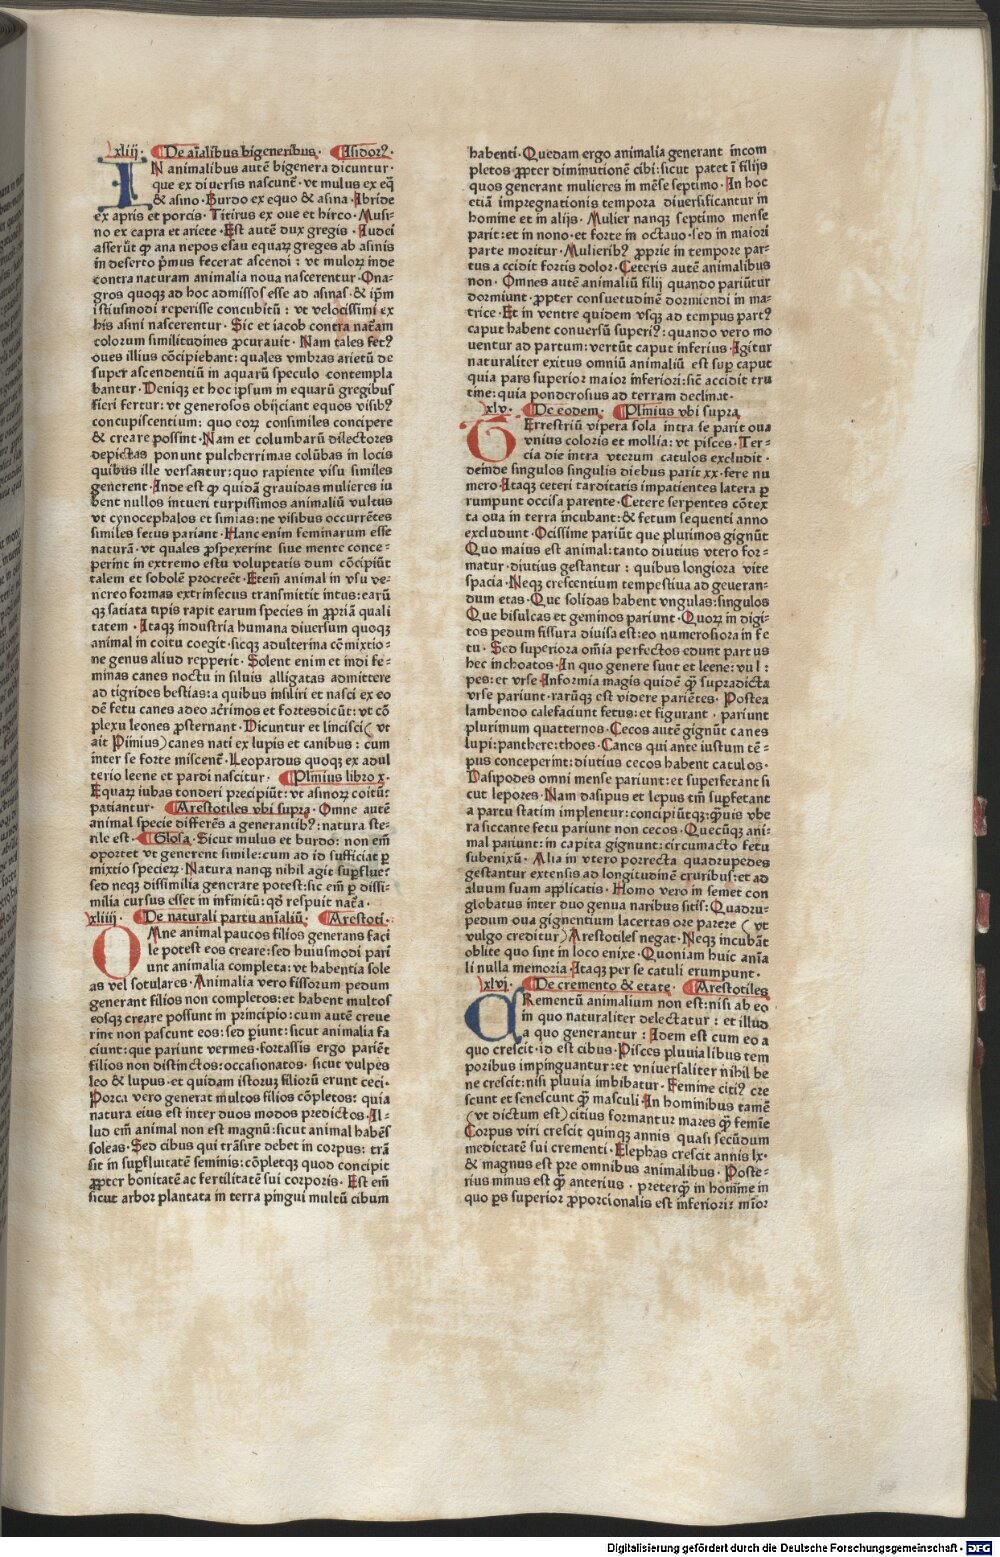 xliij. De aīalibus bigeneribus. Isidorꝰ.
IN animalibus autē bigenera dicuntur.
que ex diuersis nascunt̄. vt mulus ex eq̄
& asino. Burdo ex equo & asina. Ibride
ex apris et porcis. Titirus ex oue et hirco. Musi-
no ex capra et ariete. Est autē dux gregis. Iudei
asserūt qꝫ ana nepos esau equaꝝ greges ab asinis
in deserto p̄mus fecerat ascendi : vt muloꝝ inde
contra naturam animalia noua nascerentur. Ona-
gros quoqꝫ ad hoc admissos esse ad asinas. & ip̄m
istiusmodi reperisse concubitū : vt velocissimi ex
his asini nascerentur. Sic et iacob contra nat̄am
colorum similitudines ꝓcurauit. Nam tales fetꝰ
oues illius cōcipiebant: quales vmbras arietū de
super ascendentiū in aquarū speculo contempla
bantur. Deniqꝫ et hoc ipsum in equarū gregibus
fieri fertur: vt generosos obijciant equos visibꝰ
concupiscentium: quo eoꝝ consimiles concipere
& creare possint. Nam et columbarū dilectores
depictas ponunt pulcherrimas colūbas in locis
quibus ille versantur: quo rapiente visu similes
generent. Inde est qꝫ quidā grauidas mulieres iu
bent nullos intueri turpissimos animaliū vultus
vt cynocephalos et simias: ne visibus occurrētes
similes fetus pariant. Hanc enim feminarum esse
naturā. vt quales ꝓspexerint siue mente conce-
perint in extremo estu voluptatis dum cōcipiūt
talem et sobolē procreēt. Etem̄ animal in vsu ve-
nereo formas extrinsecus transmittit intus: earū
qꝫ satiata tipis rapit earum species in ꝓpriā quali
tatem. Itaqꝫ industria humana diuersum quoqꝫ
animal in coitu coegit. sicqꝫ adulterina cō mixtio-
ne genus aliud repperit. Solent enim et indi fe-
minas canes noctu in siluis alligatas admittere
ad tigrides bestias: a quibus insiliri et nasci ex eo
dē fetu canes adeo acrimos et fortes dicūt: vt cō
plexu leones ꝓsternant. Dicuntur et lincisci ( vt
ait Plinius ) canes nati ex lupis et canibus : cum
inter se forte miscent̄. Leopardus quoqꝫ ex adul
terio leene et pardi nascitur. Plinius libro x.
Equaꝝ iubas tonderi precipiūt: vt asinoꝝ coitū
patiantur. Arestotiles vbi supra. Omne autē
animal specie differēs a generantibꝰ: natura ste-
rile est. Glosa. Sicut mulus et burdo: non em̄
oportet vt generent simile: cum ad id sufficiat ꝑ
mixtio specieꝝ. Natura nanqꝫ nihil agit supflue:
sed neqꝫ dissimilia generare potest: sic em̄ ꝑ dissi-
milia cursus esset in infinitū: qd̄ respuit nat̄a.
xliiij. De naturali partu aīaliū. Arestoti.
OMne animal paucos filios generans faci
le potest eos creare: sed huiusmodi pari
unt animalia completa: vt habentia sole
as vel sotulares. Animalia vero fissorum pedum
generant filios non completos: et habent multos
eosqꝫ creare possunt in principio: cum autē creue
rint non pascunt eos: sed ꝑiunt: sicut animalia fa
ciunt: que pariunt vermes. fortassis ergo pariēt
filios non distinctos: occasionatos. sicut vulpes
leo & lupus. et quidam istoruꝫ filiorū erunt ceci.
Porca vero generat multos filios cōpletos: quia
natura eius est inter duos modos predictos. Il-
lud em̄ animal non est magnū: sicut animal habēs
soleas. Sed cibus qui trāsire debet in corpus: trā
sit in supfluitatē seminis: cōpletqꝫ quod concipit
ꝓpter bonitatē ac fertilitatē sui corporis. Est em̄
sicut arbor plantata in terra pingui multū cibum
habenti. Quedam ergo animalia generant incom
pletos ꝓpter diminutionē cibi: sicut patet ī filijs
quos generant mulieres in mēse septimo. In hoc
etiā impregnationis tempora diuersificantur in
homine et in alijs. Mulier nanqꝫ septimo mense
parit: et in nono. et forte in octauo. sed in maiori
parte moritur. Mulieribꝰ ꝓprie in tempore par-
tus accidit fortis dolor. Ceteris autē animalibus
non. Omnes autē animaliū filij quando pariūtur
dormiunt. ꝓpter consuetudinē dormiendi in ma-
trice. Et in ventre quidem vsqꝫ ad tempus partꝰ
caput habent conuersū superiꝰ: quando vero mo
uentur ad partum: vertūt caput inferius. Igitur
naturaliter exitus omniū animaliū est sup caput
quia pars superior maior inferiori: sic̄ accidit tru
tine: quia ponderosius ad terram declinat.
xlv. De eodem. Plinius vbi supra.
TErrestriū vipera sola intra se parit oua
vnius coloris et mollia: vt pisces. Ter-
cia die intra vterum catulos excludit.
deinde singulos singulis diebus parit xx. fere nu
mero. Itaqꝫ ceteri tarditatis impatientes latera ꝑ
rumpunt occisa parente. Cetere serpentes cōtex
ta oua in terra incubant: & fetum sequenti anno
excludunt. Ocissime pariūt que plurimos gignūt
Quo maius est animal: tanto diutius vtero for-
matur. diutius gestantur : quibus longiora vite
spacia. Neqꝫ crescentium tempestiua ad generan-
dum etas. Que solidas habent vngulas: singulos
Que bisulcas et geminos pariunt. Quoꝝ in digi-
tos pedum fissura diuisa est: eo numerosiora in fe
tu. Sed superiora om̄ia perfectos edunt partus
hec inchoatos. In quo genere sunt et leene: vul :
pes: et vrse. Informia magis quidē qꝫ supradicta
vrse pariunt. rarūqꝫ est videre pariētes. Postea
lambendo calefaciunt fetus: et figurant. pariunt
plurimum quatternos. Cecos autē gignūt canes
lupi: panthere: thoes. Canes qui ante iustum tē-
pus conceperint: diutius cecos habent catulos.
Dasipodes omni mense pariunt: et superfetant si
cut lepores. Nam dasipus et lepus tm̄ supfetant
a partu statim implentur: concipiūtqꝫ: qͣuis vbe
ra siccante fetu pariunt non cecos. Quecūqꝫ ani-
mal pariunt: in capita gignunt: circumacto fetu
subenixū. Alia in vtero porrecta quadrupedes
gestantur extensis ad longitudinē cruribus: et ad
aluum suam applicatis. Homo vero in semet con
globatus inter duo genua naribus sitis: Quadru-
pedum oua gignentium lacertas ore parere ( vt
vulgo creditur ) Arestotiles negat. Neqꝫ incubāt
oblite quo sint in loco enixe. Quoniam huic anīa
li nulla memoria. Itaqꝫ per se catuli erumpunt.
xlvj. De cremento & etate. Arestotiles
CRementū animalium non est: nisi ab eo
in quo naturaliter delectatur : et illud
a quo generantur : Idem est cum eo a
quo crescit. id est cibus. Pisces pluuialibus tem
poribus impinguantur: et vniuersaliter nihil be
ne crescit: nisi pluuia imbibatur. Femine citiꝰ cre
scunt et senescunt qꝫ masculi. In hominibus tamē
( vt dictum est ) citius formantur mares qꝫ femīe
Corpus viri crescit quinqꝫ annis quasi secūdum
medietatē sui crementi. Elephas crescit annis lx.
& magnus est pre omnibus animalibus. Poste-
rius minus est qꝫ anterius . preterqꝫ in homīne in
quo ꝑs superior ꝓporcionalis est inferiori: mīor
Digitalisierung gefördert durch die Deutsche Forschungsgemeinschaft - DFG